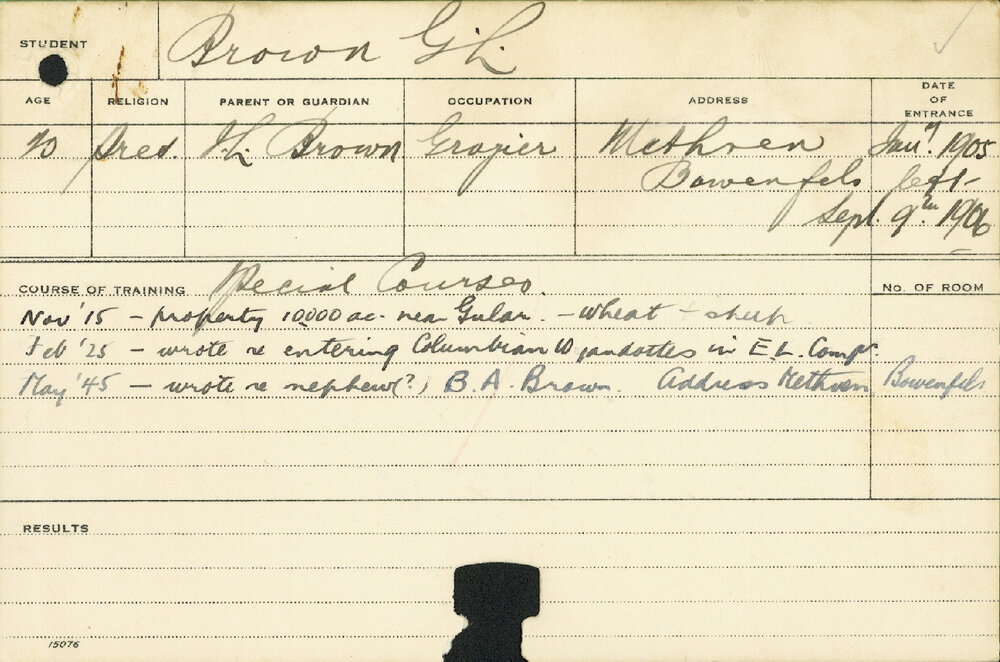 STUDENT Brown G. L.
AGE RELIGION PARENT OR GUARDIAN OCCUPATION ADDRESS DATE OF ENTRANCE
Pres. Brown Grazier Methven Jany. 1905
Bowenfels left
Sept. 9th 1906
COURSE OF TRAINING Special Courses. No. OF ROOM
Nov '15 - property 10,000 ac. near Gular. - wheat + sheep
Feb '25 - wrote re entering Columbian Wyandottes in E L. Compn.
May '45 - wrote re nephew(?) B. A. Brown. Address Methven, Bowenfels
RESULTS
15076